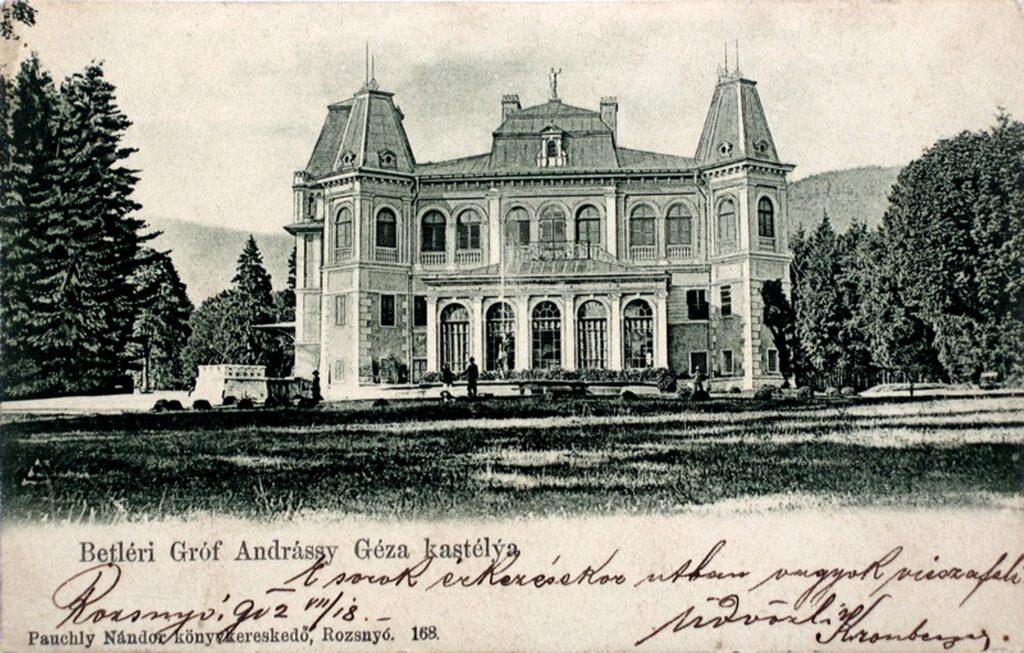 Betléri Gróf Andrássy Géza kastélya
E sorok érkezésekor utban vagyok visszafelé
Rozsnyó, VIII/18.
Üdvözli
Pauchly Nándor könyvkereskedő, Rozsnyó. 168.